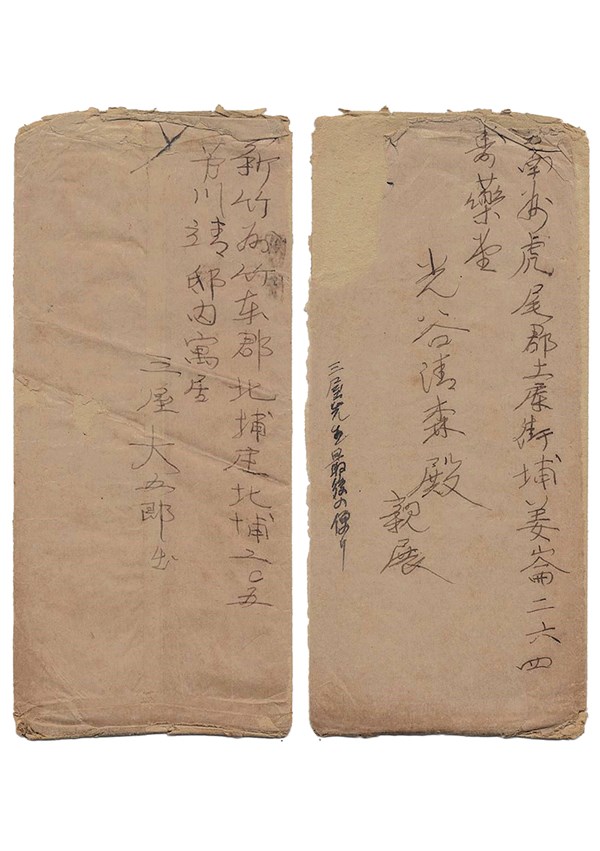 新竹州竹东郡北埔庄北埔二〇五
芳川靖邸内寓居
三屋大五郎出
台南州虎尾郡土庫街埔姜崙二六四
壽藥堂
光谷清森殿
親展
三屋先生最後の便り